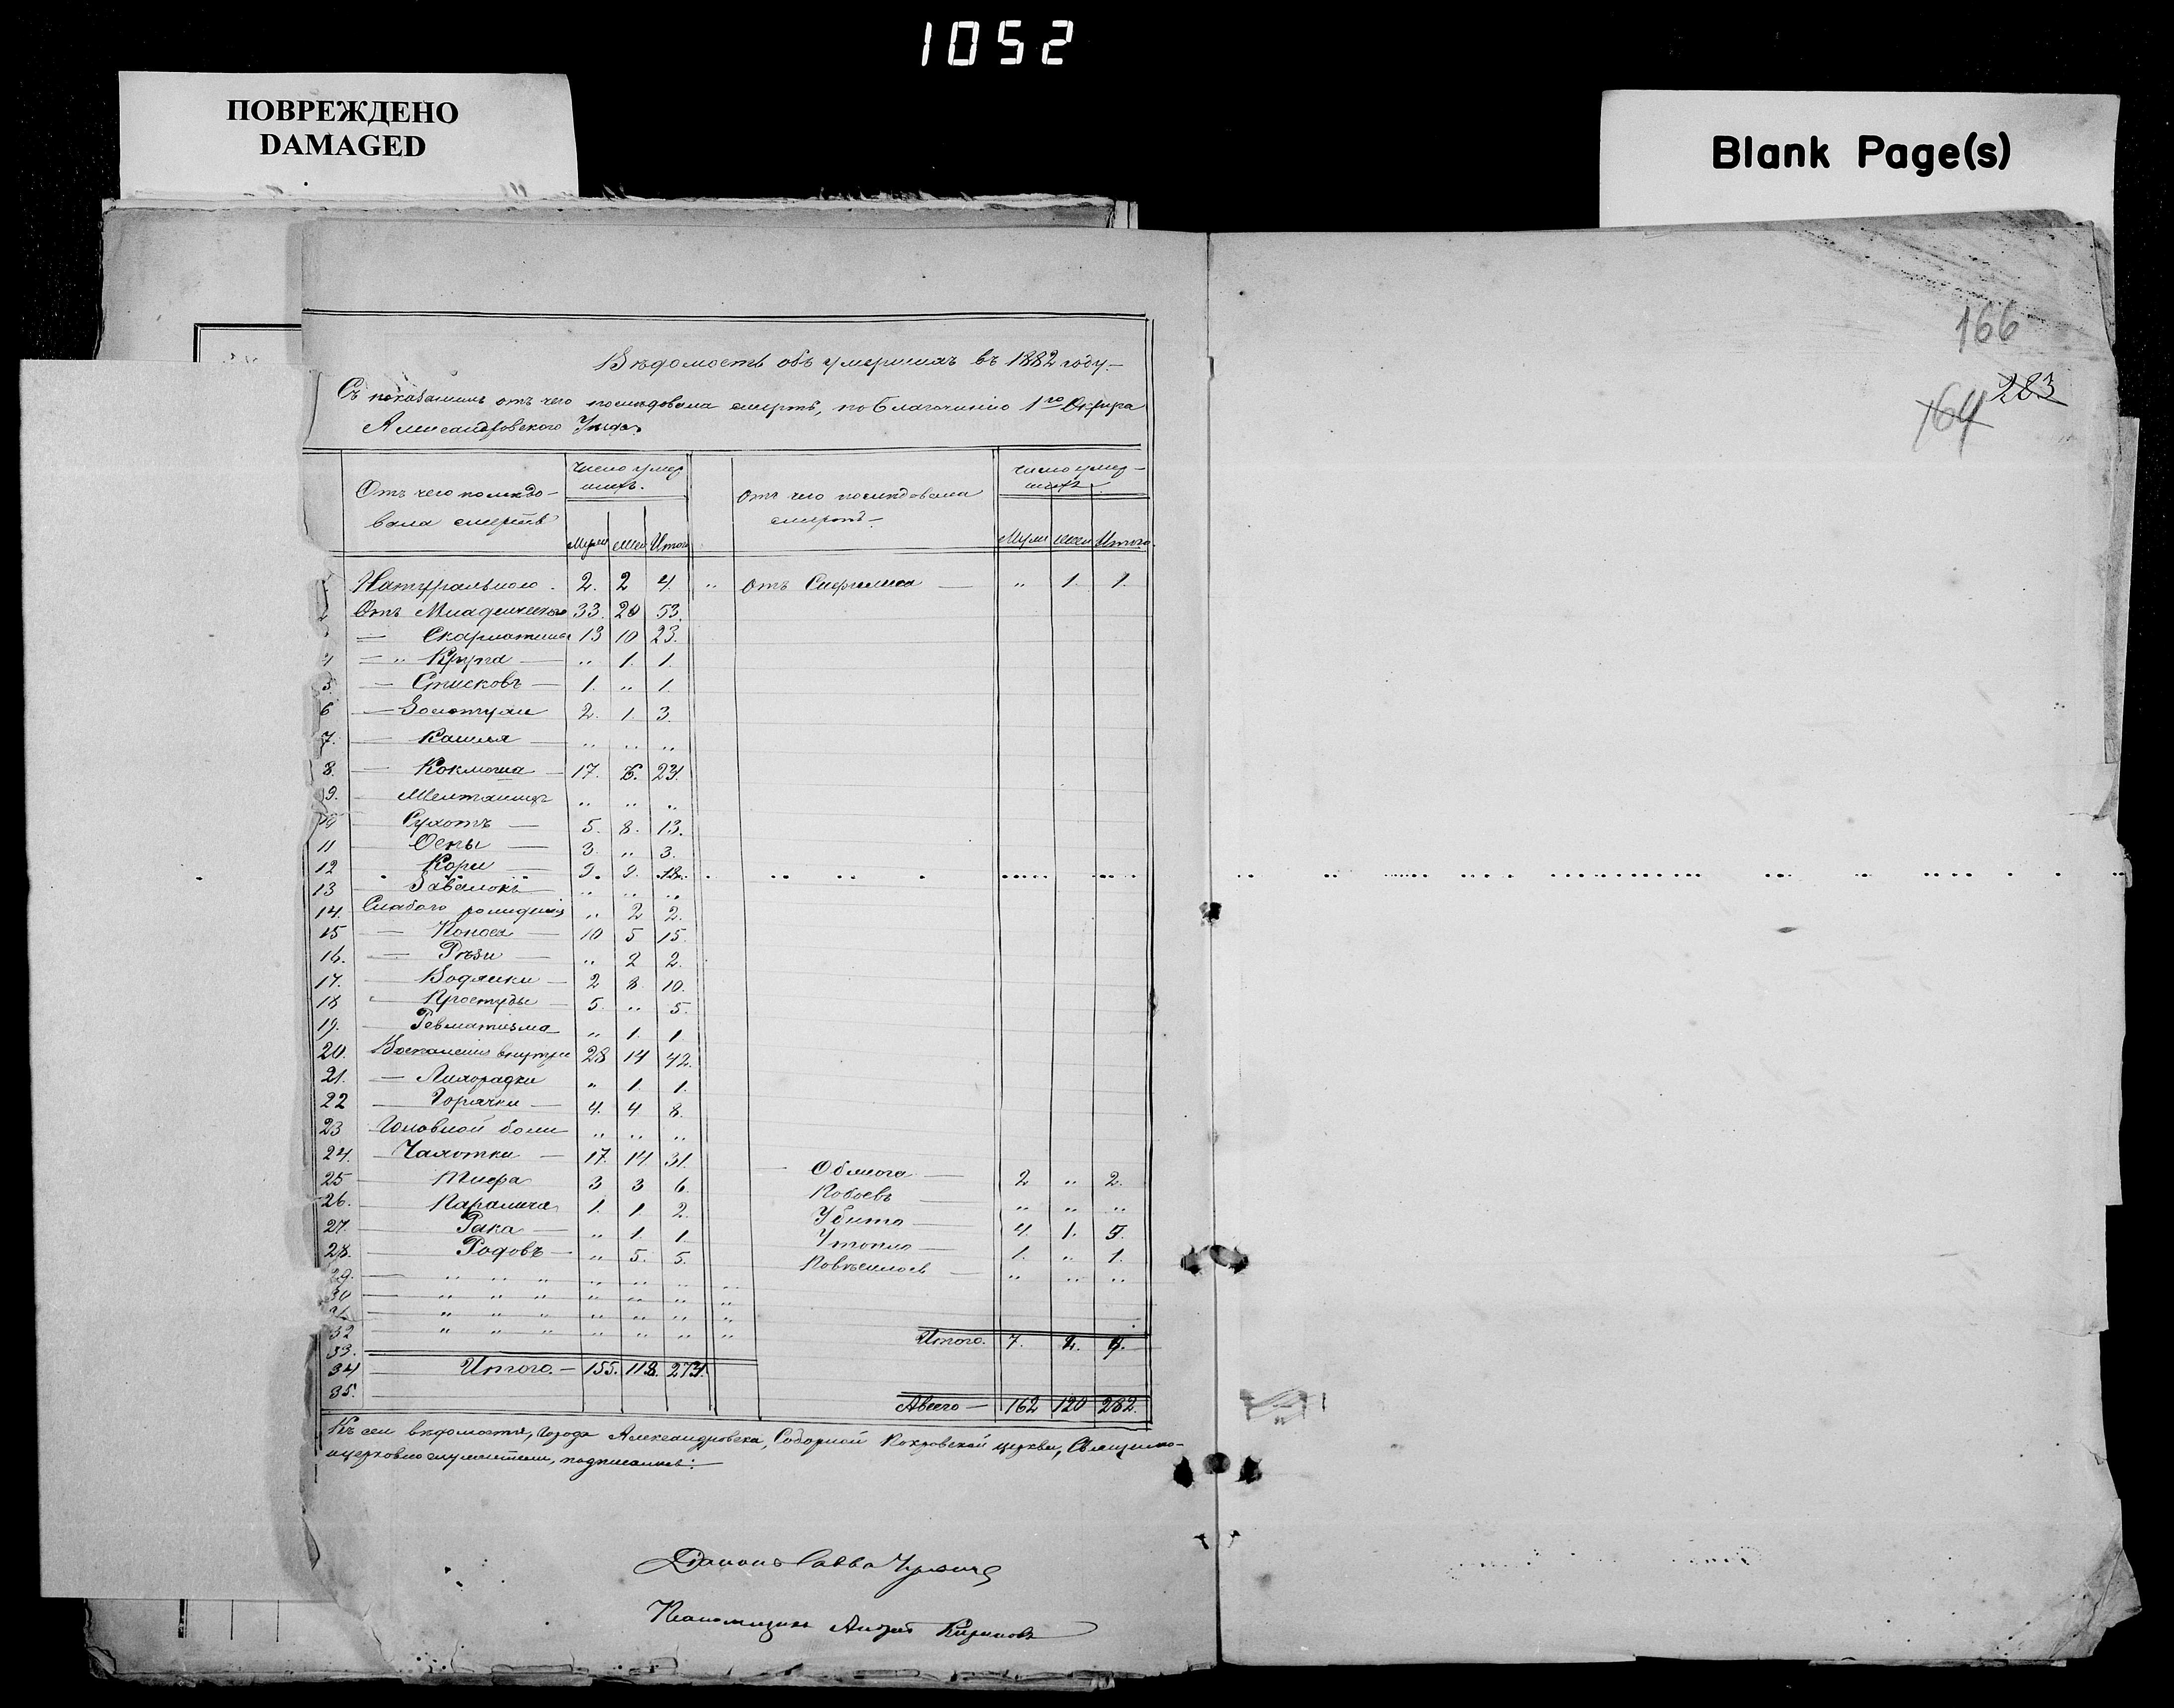 1052
ПОВРЕЖДЕНО
DAMAGED
Blank Page(s)
166
283
164
Вѣдомость объ умершихъ въ 1882 году.—
Съ показаніемъ отъ чего послѣдовала смерть, по Благочинію 1го Округа
Александровскаго Уѣзда.
Отъ чего послѣдо-
вала смерть
Число умер
шихъ.
Муж Жен Итого
Отъ чего послѣдовала
смерть—
число умер-
шихъ
Муж Жен Итого
Натуральною. 2. 2 4. " отъ Сифилиса — " 1. 1.
2 Отъ Младенческой 33. 20 53.
— Скарлатины 13 10 23.
4 — " Крупа — " 1. 1.
5. — Списковъ — 1. " 1.
6 — Золотухи 2. 1. 3.
7. — Кашля — " " "
8. — Коклюша — 17. 6. 23.
9. — " " "
10 — Сухотъ — 5. 8. 13.
11 — Оспы — 3. " 3.
12 Кори — 9. 9. 18.
13 — Завалокъ — " " "
14. Слабого рожденія " 2 2.
15 — Поноса — 10 5 15.
16. — Рѣзи — " 2 2.
17. — Водянки — 2 8. 10.
18 — Простуды — 5. " 5.
19. — Ревматизма — " 1. 1.
20. Воспаленія внутри 28 14 42.
21. — Лихорадки " 1. 1.
22 — Горячки — 4. 4 8.
23 Головной боли — " " "
24. — Чахотки — 17. 14. 31. — Обжога — 2 " 2.
25 — Тифа 3 3 6. Побоевъ — " " "
26. — Паралича 1. 1. 2. Убито — 4. 1. 5.
27. — Рака — " 1. 1. Утопло — 1. " 1.
28. — Родовъ — " 5. 5. Повѣсилось — " " "
29. — " " " " " " "
30 — " " " " " " "
31 — " " " " " " "
32 — " " " " " " " Итого. 7. 2. 9.
33.
34 Итого.— 155. 118. 273.
35. Авсего— 162 120 282.
Къ сей вѣдомости, города Александровска, Соборной Покровской церкви, Священно-
ицерковнослужители, подписались:—
Діаконъ Савва
Псаломщикъ Андрей